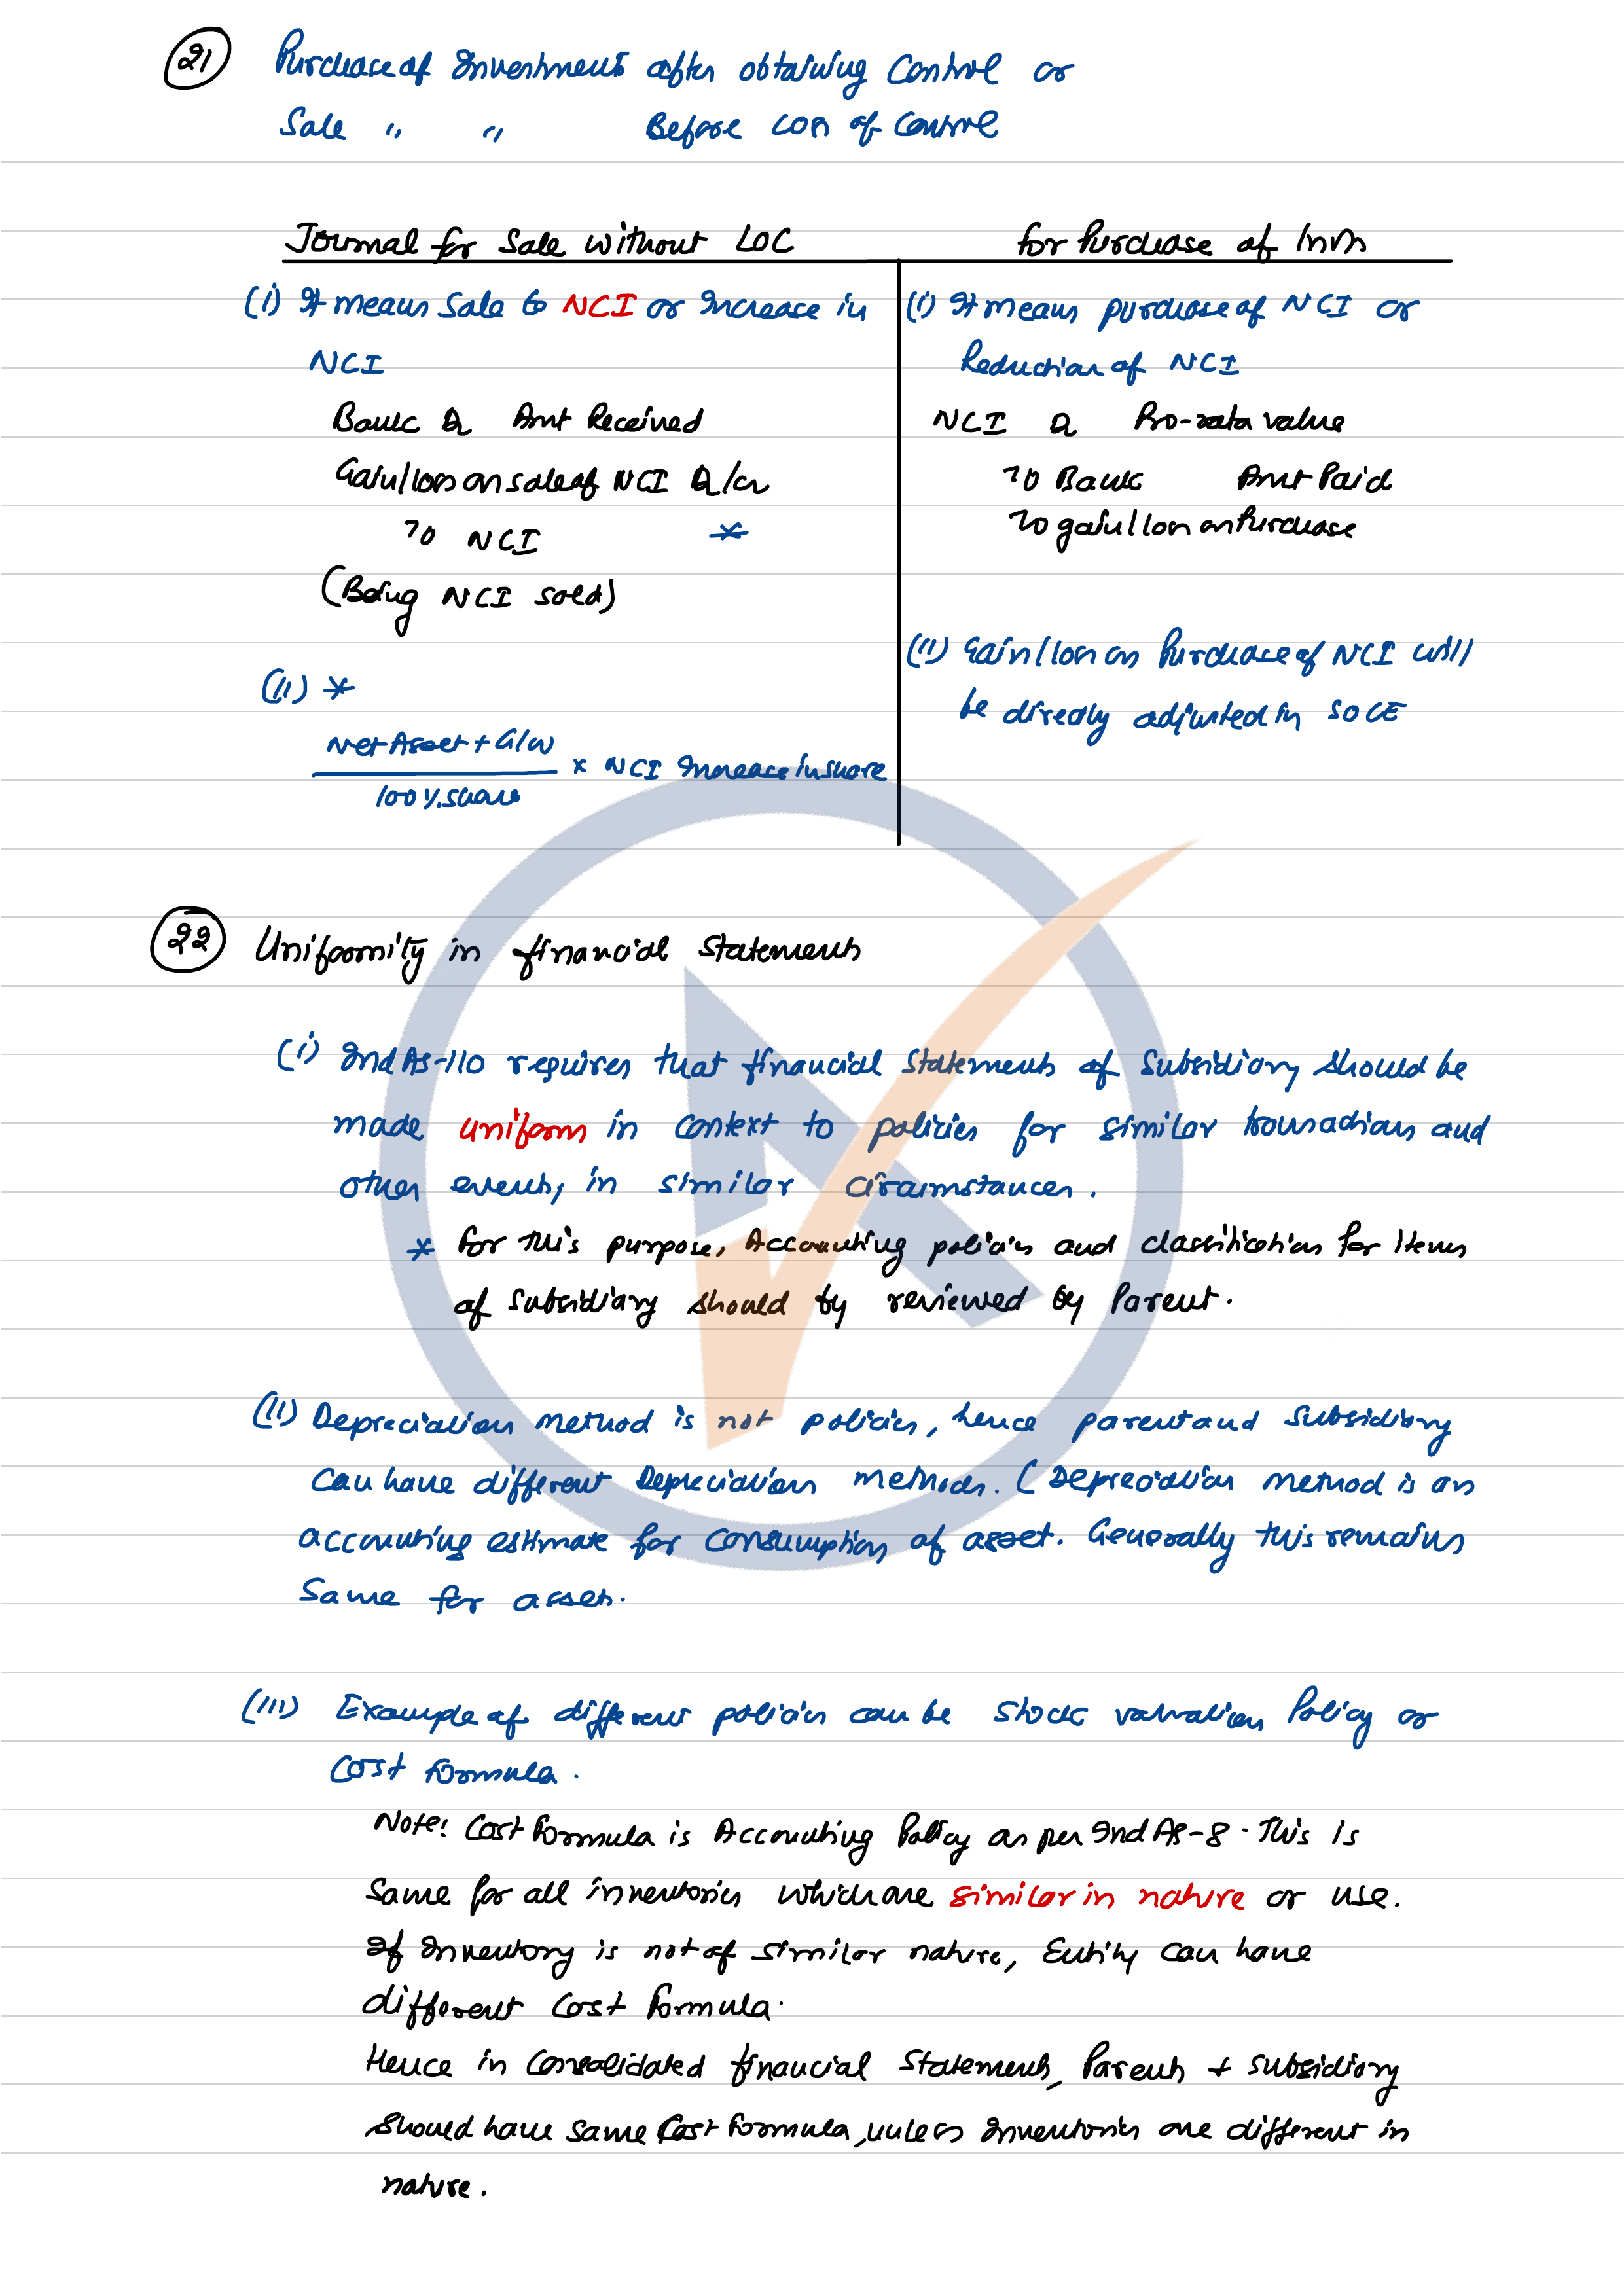 21 Purchase of Investments after obtaining Control or
Sale " " Before loss of Control
Journal for Sale without LOC
(i) It means Sale to NCI or Increase in
NCI
Bank Dr Amt Received
Gain/loss on sale of NCI Dr/Cr
To NCI *
(Being NCI sold)
(ii) *
Net Asset + G/W
100% share
× NCI Increase in share
for Purchase of Invts
(i) It means purchase of NCI or
Reduction of NCI
NCI Dr Pro-rata value
To Bank Amt Paid
To gain/loss on Purchase
(ii) Gain/loss on Purchase of NCI will
be directly adjusted in SOCE
22 Uniformity in financial Statements
(i) Ind AS-110 requires that financial Statements of Subsidiary should be
made uniform in context to policies for similar transactions and
other events, in similar circumstances.
* For this purpose, Accounting policies and classification for items
of subsidiary should by reviewed by Parent.
(ii) Depreciation method is not policies, hence parent and subsidiary
can have different Depreciation methods. (Depreciation method is an
accounting estimate for consumption of asset. Generally this remains
same for assets.
(iii) Example of different policies can be Stock valuation Policy or
Cost formula.
Note: Cost formula is Accounting Policy as per Ind AS-8. This is
same for all inventories which are similar in nature or use.
If Inventory is not of similar nature, Entity can have
different cost formula.
Hence in Consolidated financial Statements, Parents + subsidiary
should have same Cost formula, unless Inventories are different in
nature.